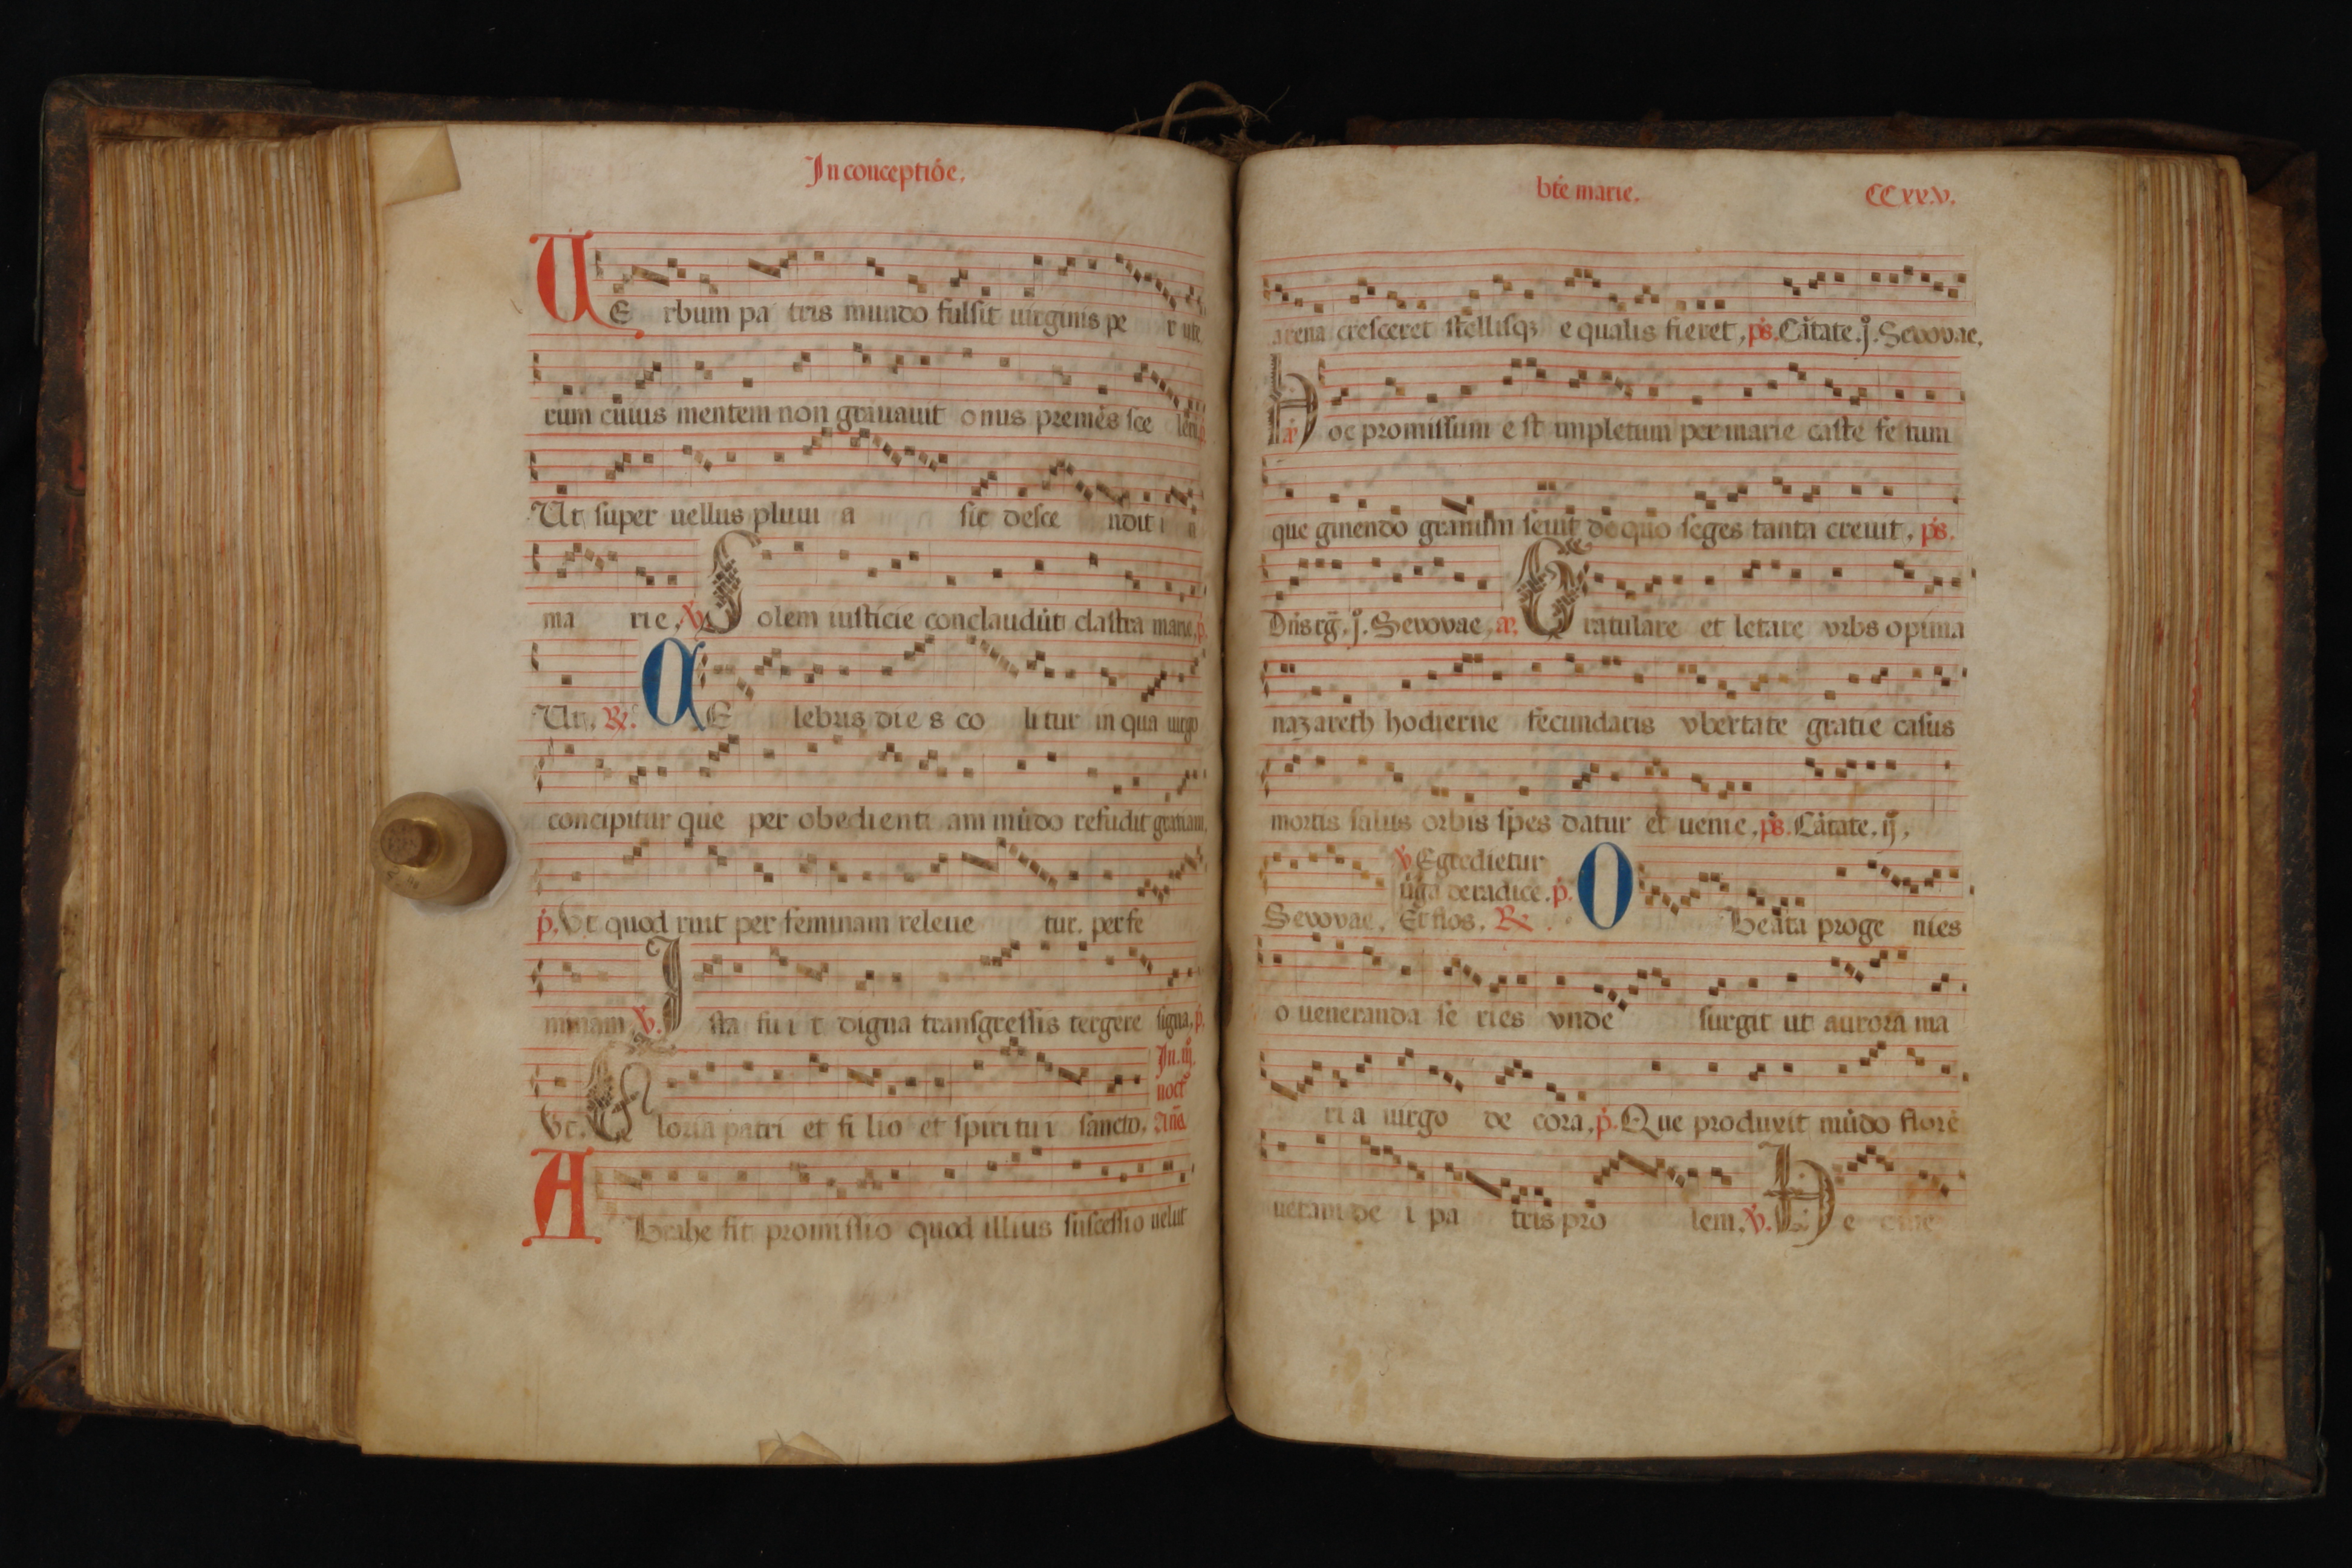 In conceptiōe.
VE rbum pa tris mundo fulsit uirginis pe r uite
rum cuius mentem non grauauit o nus premēs sce leru. p.
Ut super uellus pluui a sic desce ndit i n
ma rie, ꝟ. Solem iusticie conclaudūt claustra marie, p.
Ut. ℟. CE lebris die s co li tur in qua uirgo
concipitur que per obedienti am mūdo refudit gratiam,
p. Ut quod ruit per feminam releue tur. per fe
minam, ꝟ. Ista fu i t digna transgressis tergere signa, p.
Ut. Gloria patri et fi lio et spiritu i sancto, In. iij. noct᷒ Añā
Abrahe fit promissio quod illius suscessio uelut
bt̄e marie. CCxx.v.
arena cresceret stellisqꝫ e qualis fieret, ps. Cātate. j. Sevovae,
añ Hoc promissum e st impletum per marie caste fe tum
que ginendo granum seuit de quo seges tanta creuit, ps.
Dn̄s rḡ. j. Sevovae, añ. Gratulare et letare vrbs opima
nazareth hodierne fecundaris vbertate gratie casus
mortis salus orbis spes datur et uenie, ps. Cātate. ij,
ꝟ Egredietur
ūga de radice. p.
Sevovae. Et flos. ℟. O Beata proge nies
o ueneranda se ries vnde surgit ut aurora ma
ri a uirgo de cora, p. Que produxit mūdo florē
ueram de i pa tris pro lem, ꝟ. He